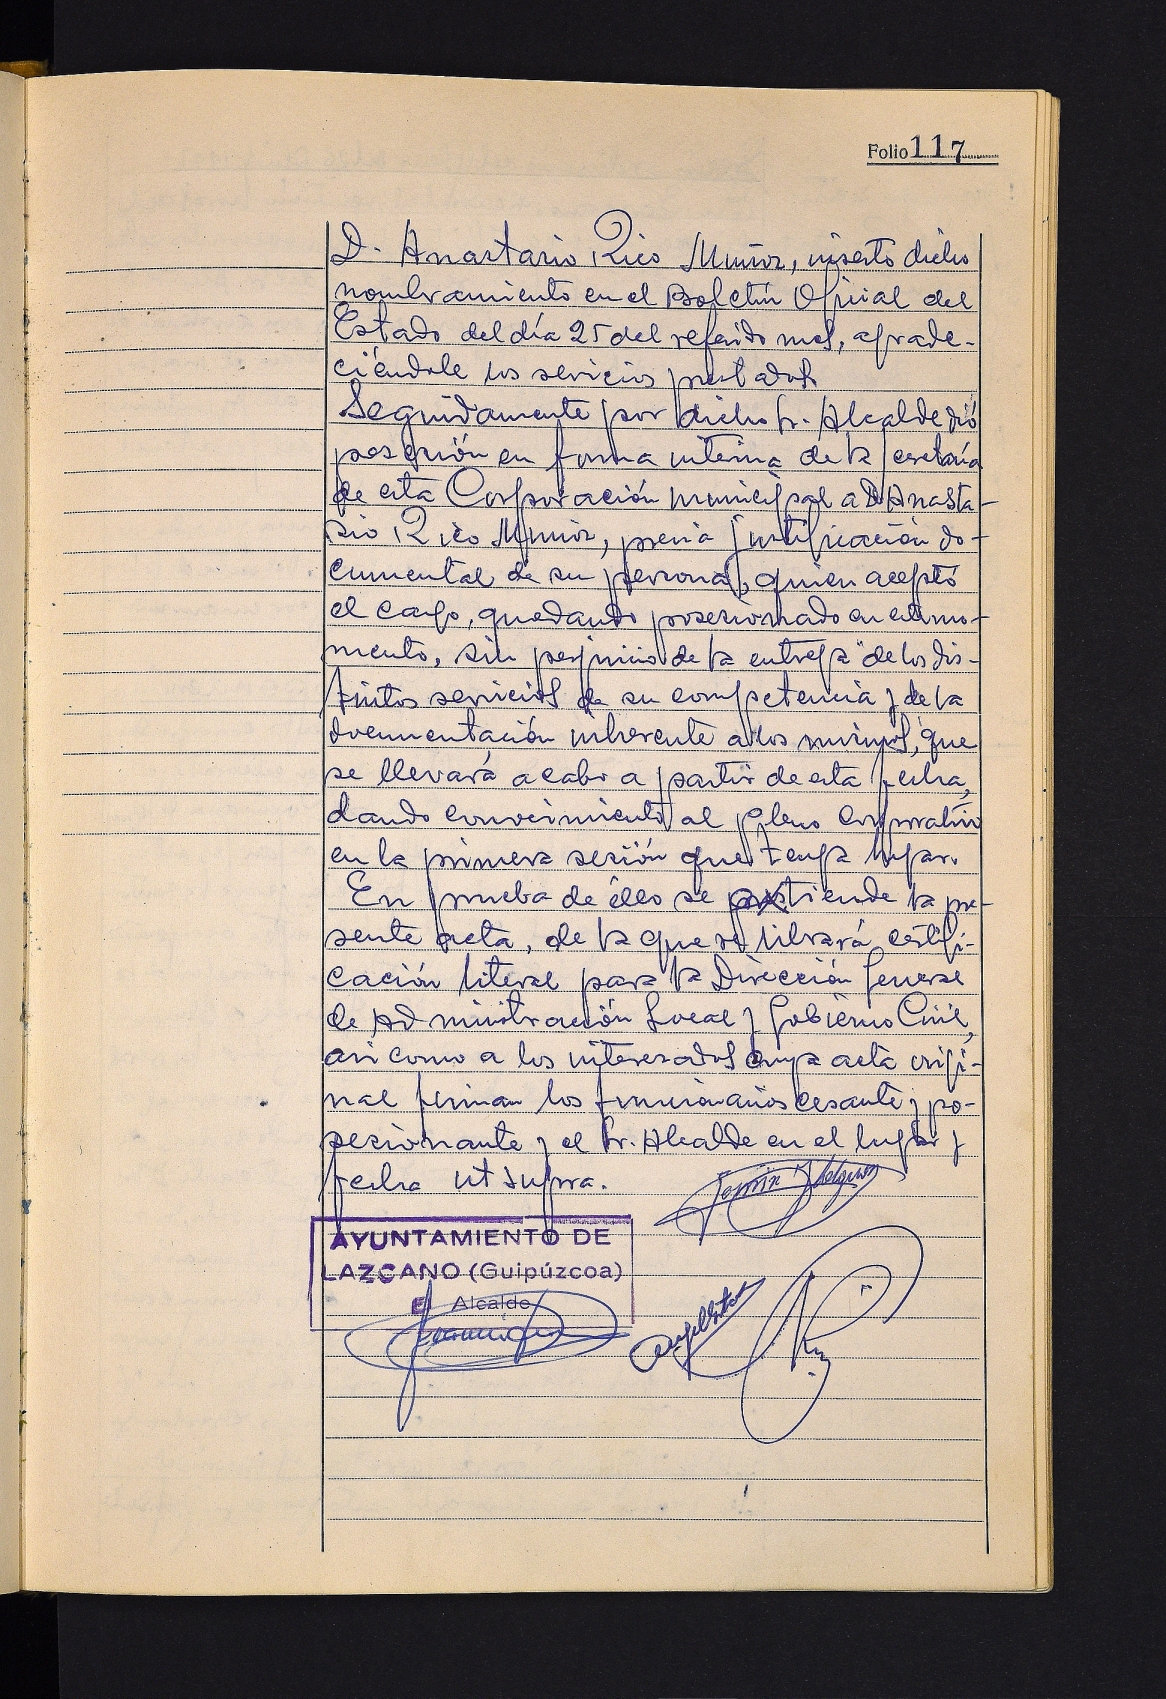 Folio 117
D. Anastasio Rico Muñoz, inserto dicho
nombramiento en el Boletín Oficial del
Estado del día 25 del referido mes, agrade-
ciéndole los servicios prestados.
Seguidamente por dicho Sr. Alcalde dió
posesión en forma interina de la secretaría
de esta Corporación municipal a D. Anasta-
sio Rico Muñoz, previa justificación do-
cumental de su persona, quien aceptó
el cargo, quedando posesionado en este mo-
mento, sin perjuicio de la entrega de los dis-
tintos servicios de su competencia y de la
documentación inherente a los mismos, que
se llevará a cabo a partir de esta fecha,
dando conocimiento al pleno corporativo
en la primera sesión que tenga lugar.
En prueba de éllo se extiende la pre-
sente acta, de la que se librará certifi-
cación literal para la Dirección General
de Administración Local y Gobierno Civil,
así como a los interesados cuya acta origi-
nal firman los funcionarios cesante y po-
sesionante y el Sr. Alcalde en el lugar y
fecha ut supra.
AYUNTAMIENTO DE
LAZCANO (Guipúzcoa)
El Alcalde